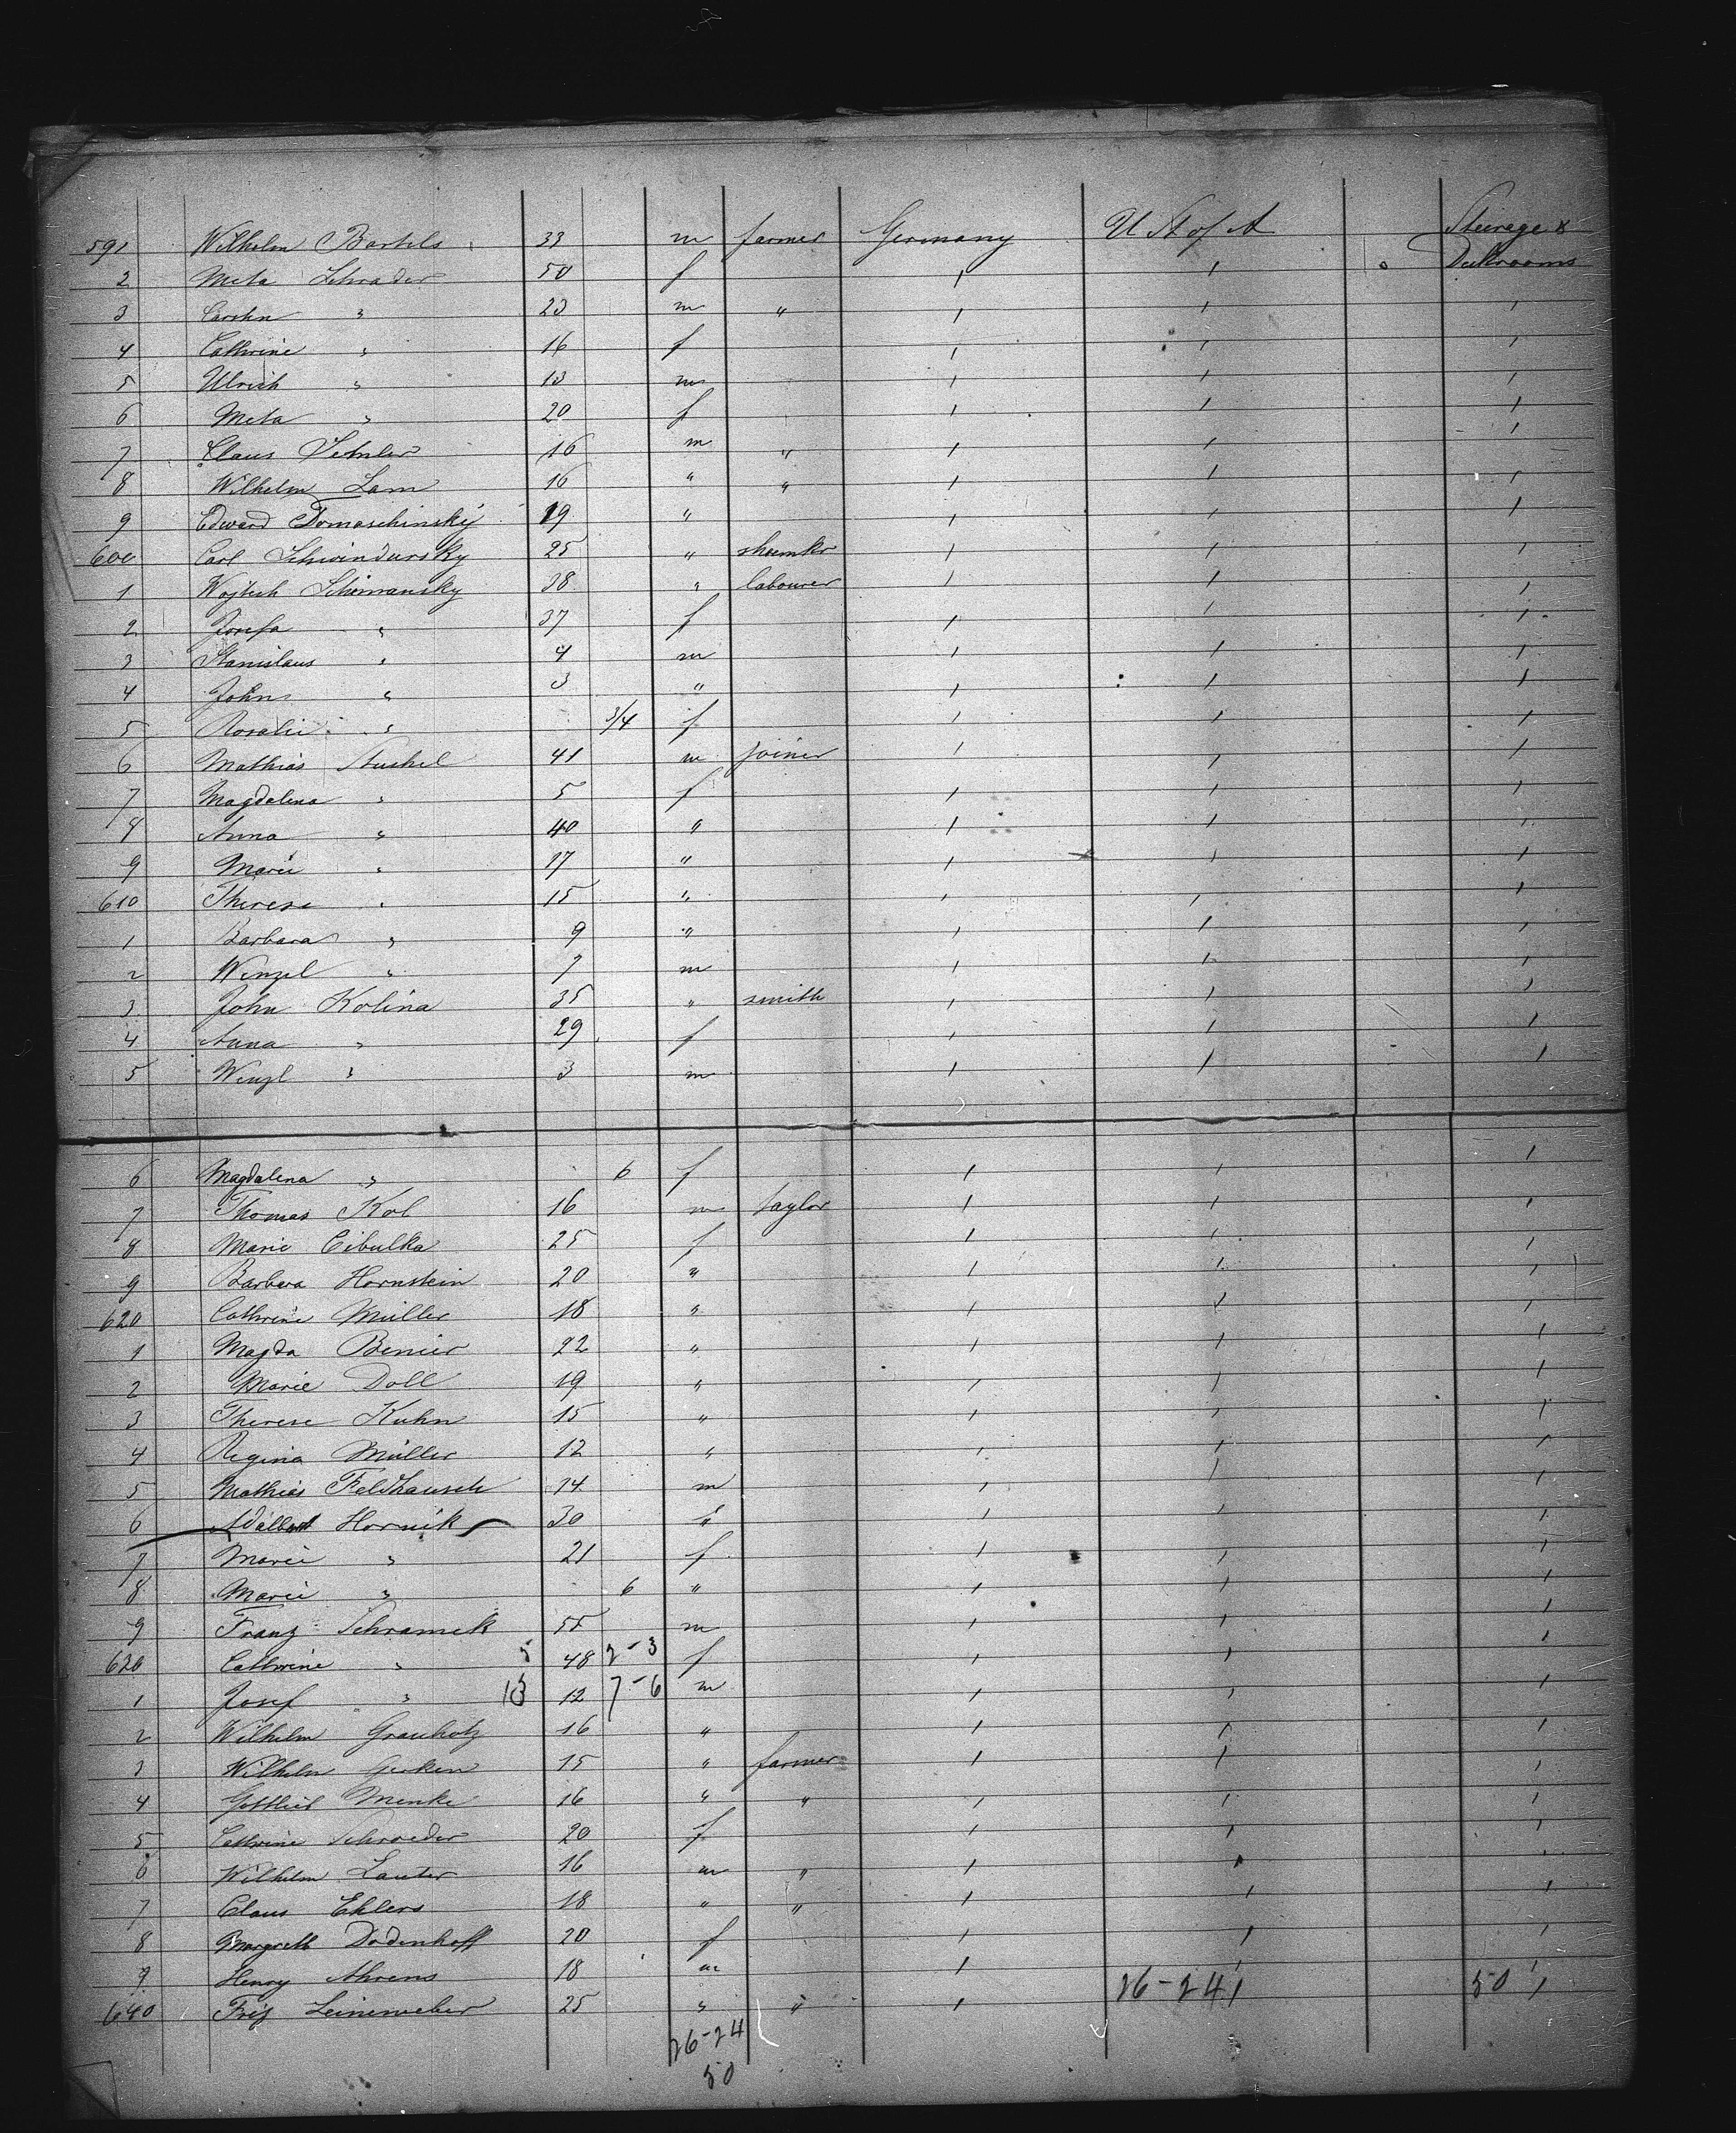 591 Wilhelm Bartels 33 m farmer Germany U St of A Steerage &
2 Meta Schrader 50 f ' ' Deckrooms
3 Carsten " 23 m " ' ' '
4 Cathrine " 16 f ' ' '
5 Ulrich " 13 m ' ' '
6 Meta " 20 f ' ' '
7 Claus 16 m " ' ' '
8 Wilhelm Lam 16 " " ' ' '
9 Edward Tomaschinsky 19 " ' ' '
600 Carl Schwindursky 25 " shoemkr ' ' '
1 Wojtech Schimansky 38 " labourer ' ' '
2 Josefa " 37 f ' ' '
3 Stanislaus " 4 m ' ' '
4 John " 3 " ' ' '
5 Rosalie " 3/4 f ' ' '
6 Mathias Stuchel 41 m joiner ' ' '
7 Magdalena " 5 f ' ' '
8 Anna " 40 " ' ' '
9 Marie " 17 " ' ' '
610 Therese " 15 " ' ' '
1 Barbara " 9 " ' ' '
2 Wenzel " 7 m ' ' '
3 John Kolina 35 " smith ' ' '
4 Anna " 29 f ' ' '
5 Wenzl " 3 m ' ' '
6 Magdalena " 6 f ' ' '
7 Thomas Kol 16 m taylor ' ' '
8 Marie Cibulka 25 f ' ' '
9 Barbara Hornstein 20 " ' ' '
620 Cathrine Müller 18 " ' ' '
1 Magda Benier 22 " ' ' '
2 Marie Doll 19 " ' ' '
3 Therese Kuhn 15 " ' ' '
4 Regina Müller 12 " ' ' '
5 Mathias Feldhausch 14 m ' ' '
6 Adalbert Hornik 30 " ' ' '
7 Marie " 21 f ' ' '
8 Marie " 6 " ' ' '
9 Franz Schramek 55 m ' ' '
620 Cathrine " 5 48 2-3 f ' ' '
1 Josef " 13 12 7-6 m ' ' '
2 Wilhelm Grauholz 16 " ' ' '
3 Wilhelm Gerken 15 " farmer ' ' '
4 Gottlieb Menke 16 " " ' ' '
5 Cathrine Schroeder 20 f ' ' '
6 Wilhelm Lauter 16 m " ' ' '
7 Claus Ehlers 18 " " ' ' '
8 Margreth Dodenhoff 20 f ' ' '
9 Henry Ahrens 18 m ' ' '
640 Friz Leineweber 25 " " ' 26-24 ' 50 '
26-24
50